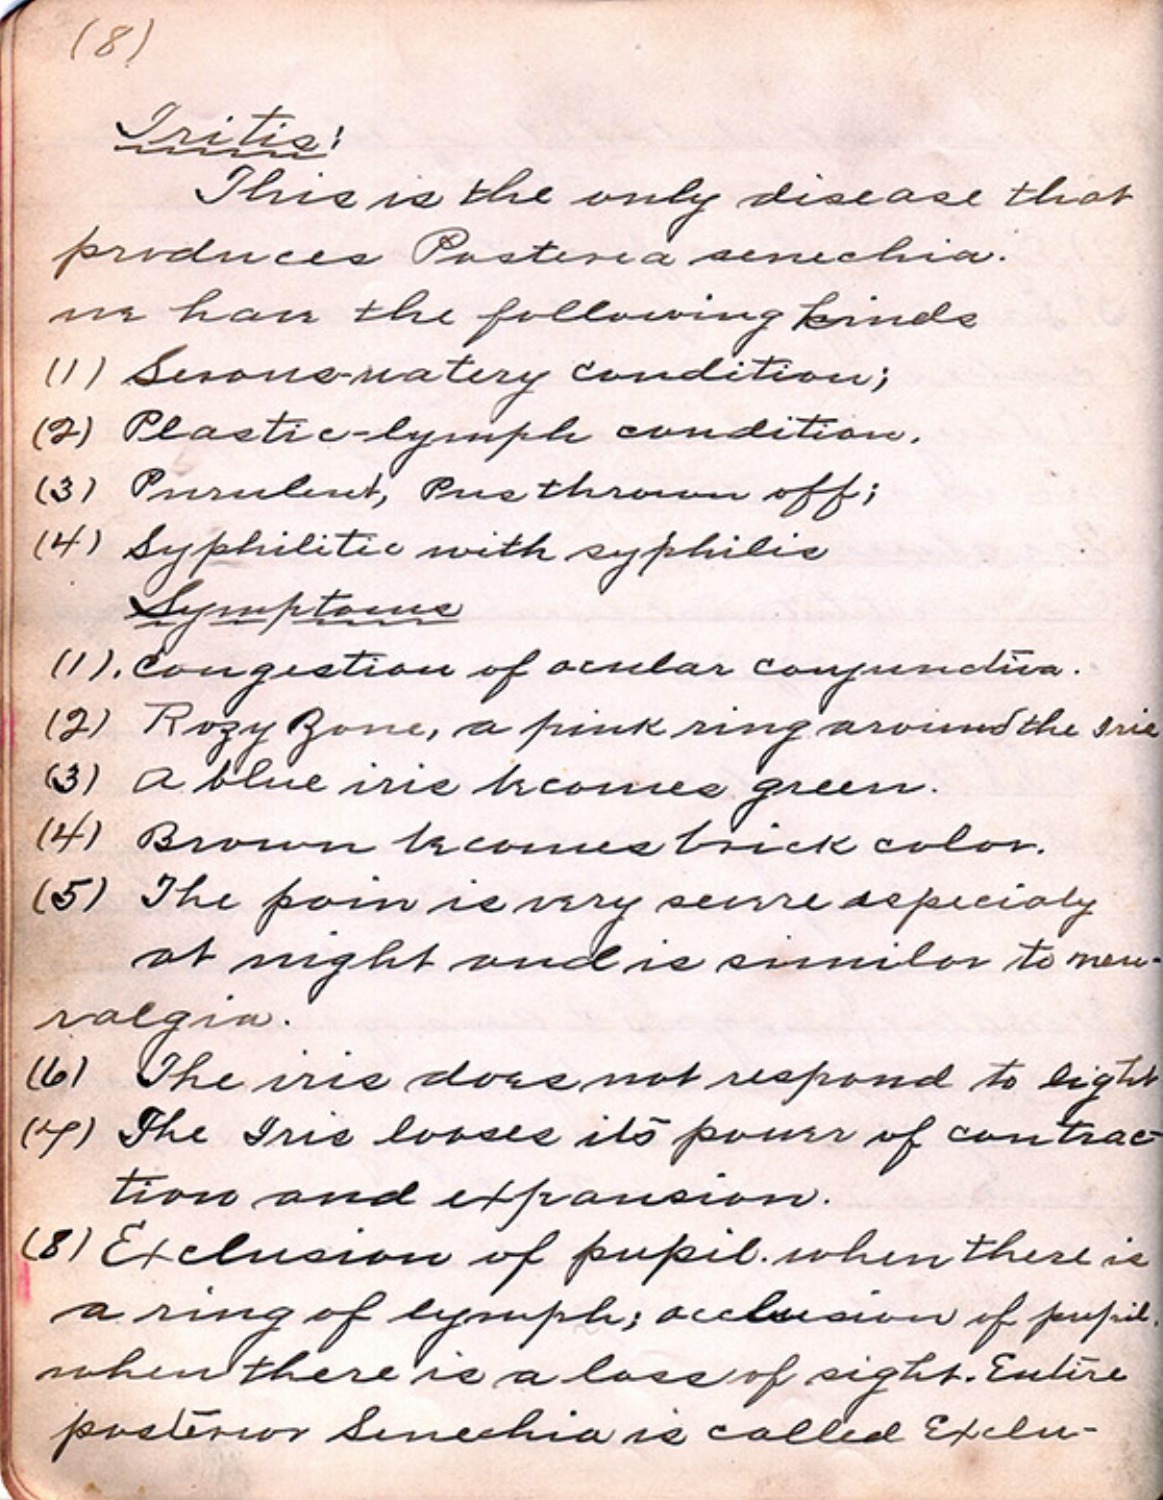 (8)
Iritis:
This is the only disease that
produces Posterea senechia.
we have the following kinds
(1) Serous-watery condition;
(2) Plastic-lymph condition.
(3) Purulent, Pus thrown off;
(4) Syphilitic with syphilis
Symptoms
(1). Congestion of ocular conjunctiva.
(2) Rozy Zone, a pink ring around the Iris
(3) A blue iris becomes green.
(4) Brown becomes brick color.
(5) The pain is very severe especialy
at night and is similar to neu-
ralgia.
(6) The iris does not respond to light
(7) The Iris looses its power of contrac-
tion and expansion.
(8) Exclusion of pupil. when there is
a ring of lymph; occlusion of pupil.
when there is a loss of sight. Entire
posterior Senechia is called Exclu-